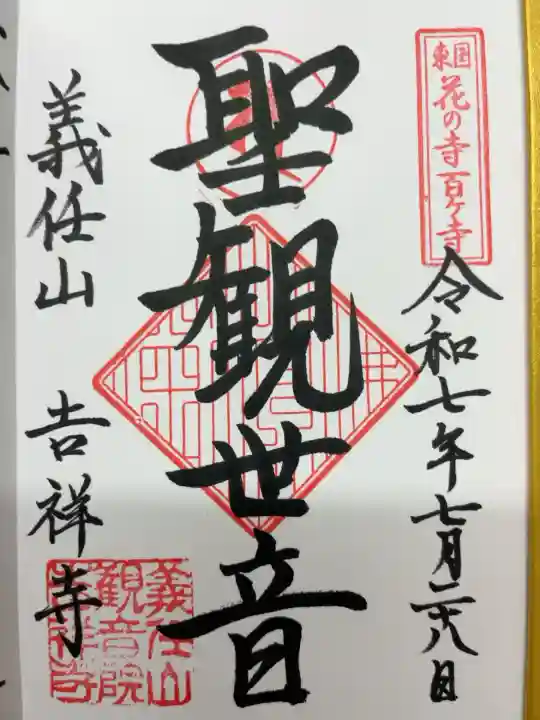 東国
花の寺百ヶ寺
令和七年七月二十八日
聖観世音
義任山 吉祥寺
義任山
観音院
吉祥寺